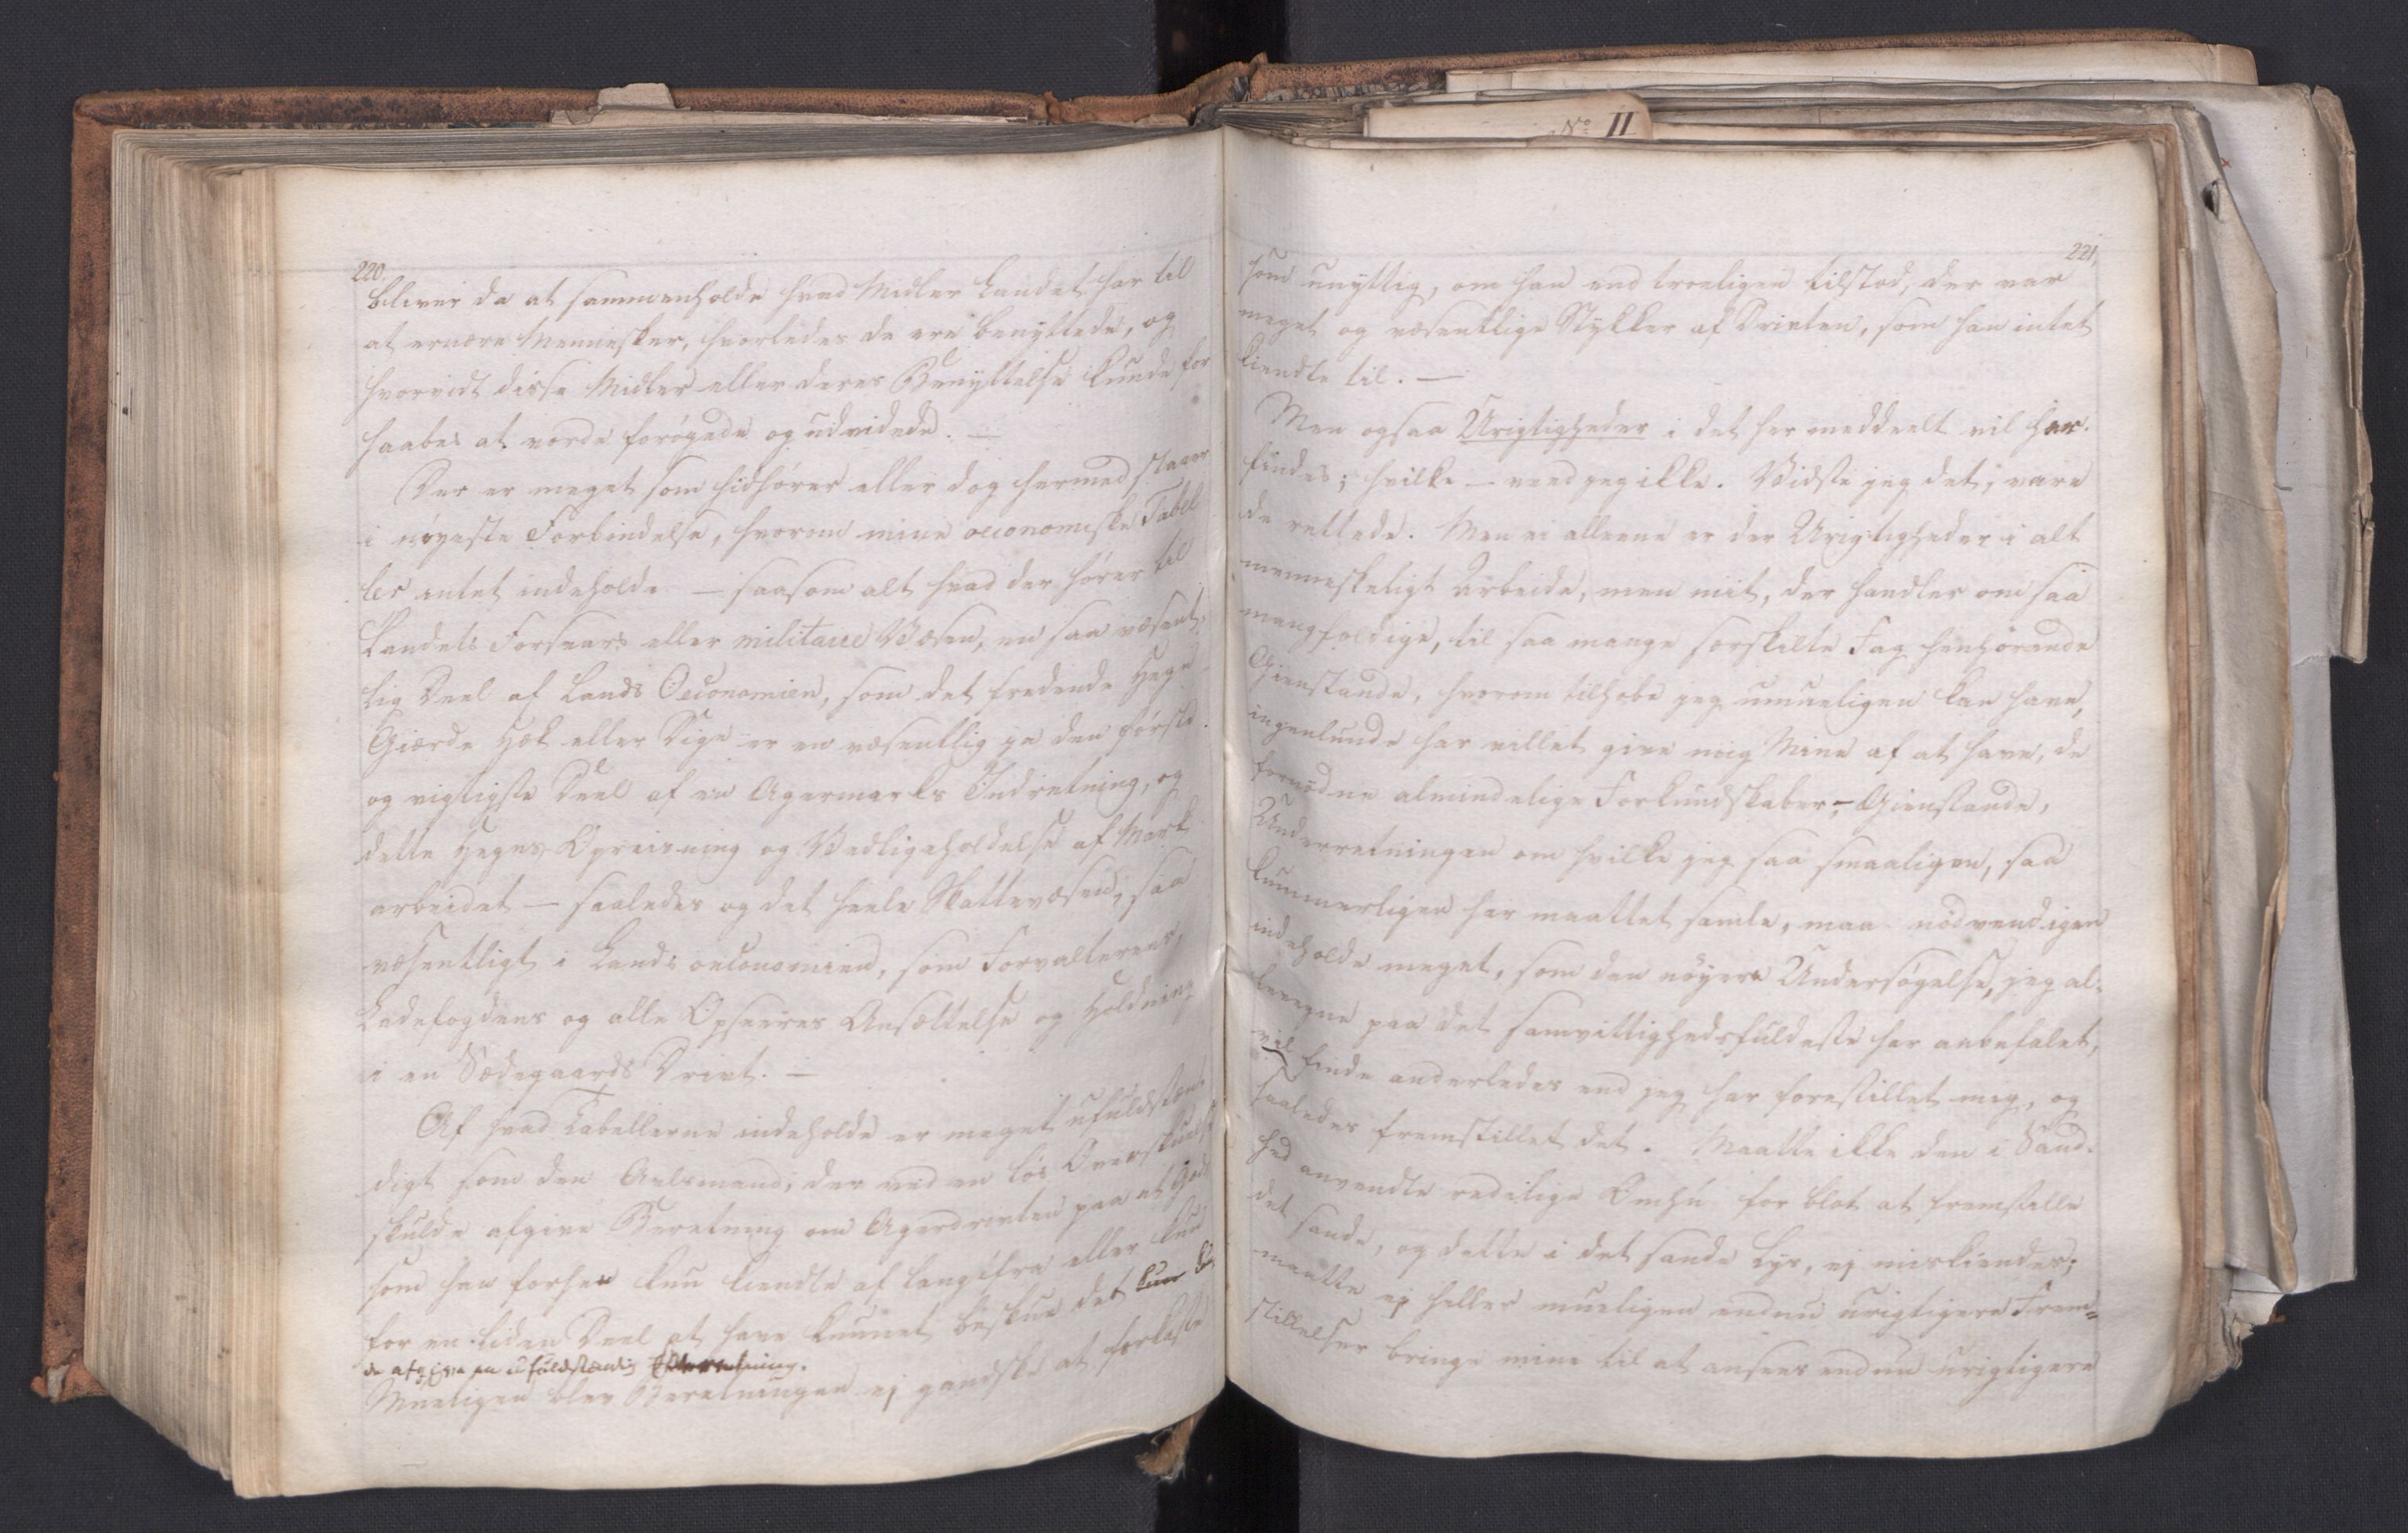 No II
220.
bliver da at sammenholde hvad Midler Landet har til
at ernære Mennesker, hvorledes de ere benyttede, og
hvorvidt disse Midler eller deres Benyttelse kunde for
haabes at vorde forøgede og udvidede. —
Der er meget som hidhører eller dog hermed staaer
i nøyeste Forbindelse, hvorom mine oeconomiske Tabel
ler intet indeholde — saasom alt hvad der hører til
Landets Forsvars eller militaire Væsen, en saa væsent-
lig Deel af Lands Oeconomien, som det fredende Hegn
Giærde Hæk eller Dige er en væsentlig ja den første
og vigtigste Deel af en Agermarks Indretning, og
dette Hegns Opreisning og Vedligeholdelse af Mark
arbeidet — saaledes og det heele Skattevæsen, saa
væsentligt i Lands oeconomien, som Forvalterens,
Ladefogdens og alle Opseeres Ansættelse og Holdning
i en Sædegaards Drivt. —
Af hvad Tabellerne indeholde er meget ufuldstæn
digt som den Avlsmand, der ved en løs Overskuelse
skulde afgive Beretning om Agerdrivten paa et Gods
som han forhen kun kiendte af langtfra eller kun
for en liden Deel at have kunnet beskue det kun
de afgive en ufuldstændig
Mueligen blev Beretningen ej gandske at forkaste
221,
som unyttig, om han end troeligen tilstod, der var
meget og væsentlige Stykker af Drivten, som han intet
kiendte til. —
Men ogsaa Urigtigheder i det her meddeelt vil her
findes; hvilke — veed jeg ikke. Vidste jeg det, vare
de rettede. Men ei alleene er der Urigtigheder i alt
menneskeligt Arbeide, men mit, der handler om saa
mangfoldige, til saa mange særskilte Fag henhørende
Gienstande, hvorom tilhobe jeg umueligen kan have,
ingenlunde har villet give mig Mine af at have, de
fornødne almindelige Forkundskaber, — Gienstande,
Underretningen om hvilke jeg saa smaaligen, saa
kummerligen har maattet samle, maa nødvendigen
indeholde meget, som den nøyere Undersøgelse, jeg al-
levegne paa det samvittighedsfuldeste har anbefalet,
vil finde anderledes end jeg har forestillet mig, og
saaledes fremstillet det. Maatte ikke den i Sand-
hed anvendte redelige Omhu for blot at fremstille
det sande, og dette i det sande Lys, ej miskiendes;
maatte ej heller mueligen endnu urigtigere Frem-
stillelser bringe mine til at ansees endnu urigtigere